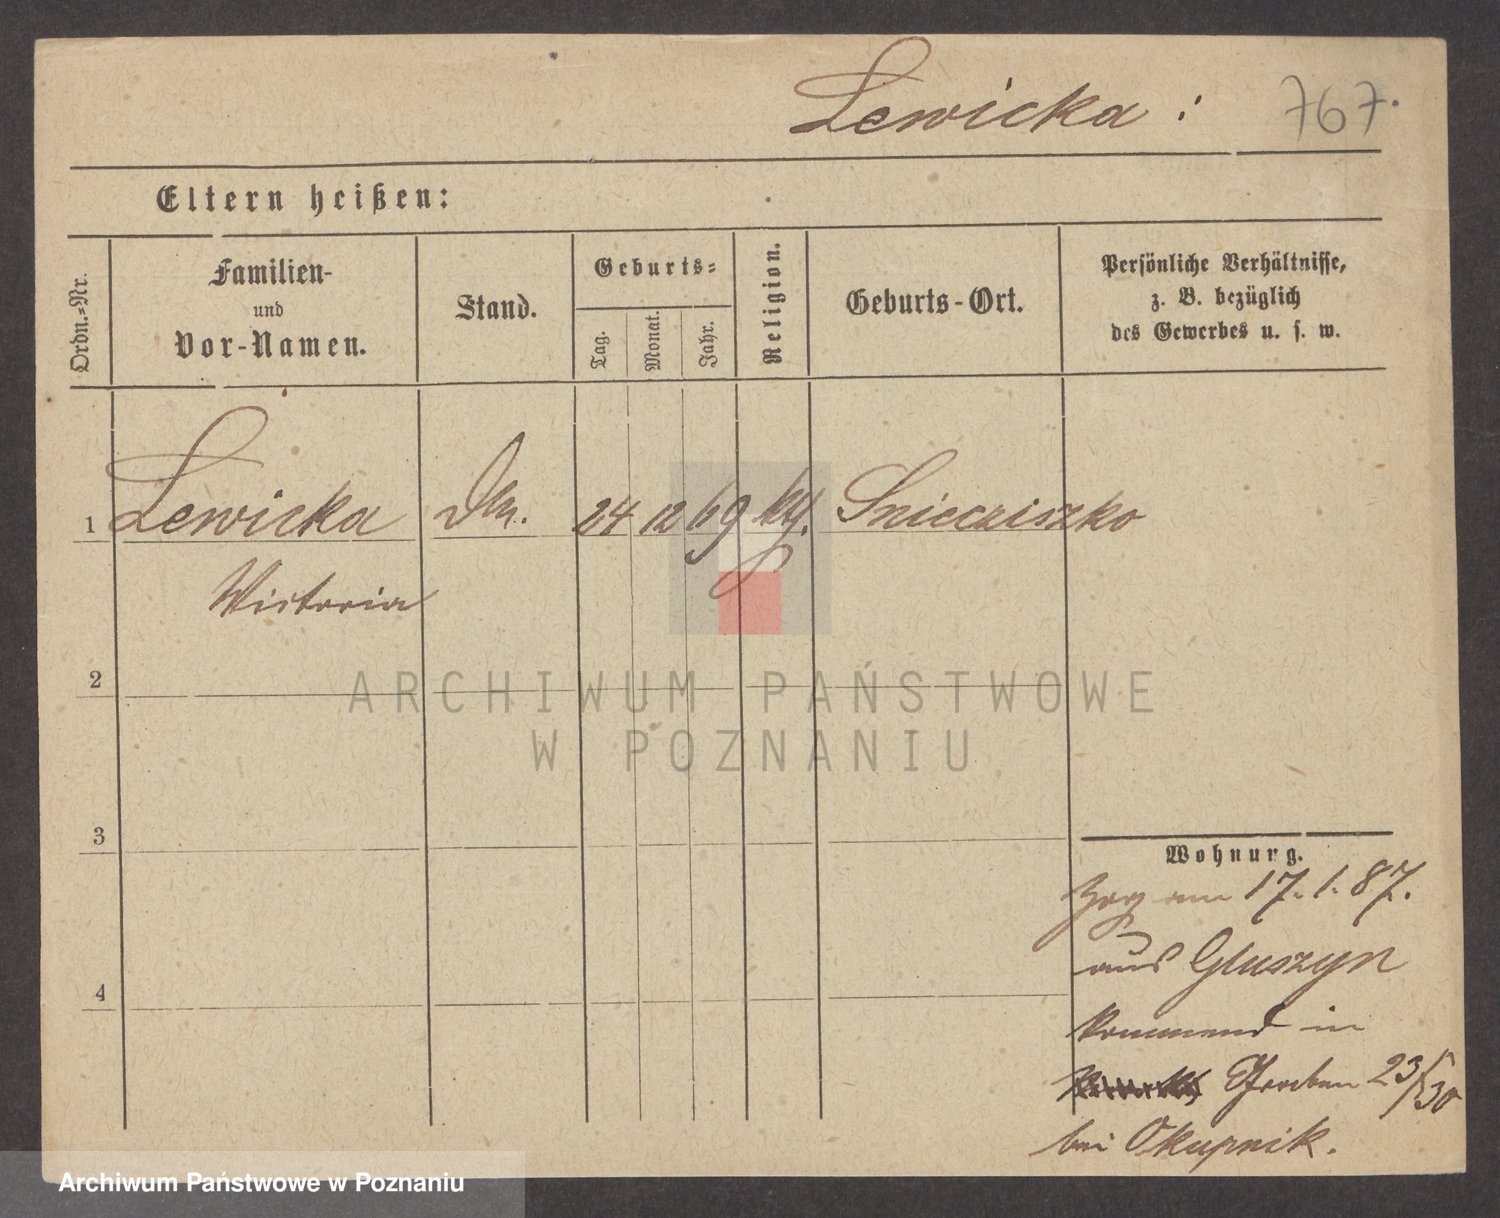 Lewicka : 767.
Eltern heißen:
Ordn.=Nr.
Familien-
und
Vor-Namen.
Stand.
Geburts=
Tag.
Monat.
Jahr.
Religion.
Geburts-Ort.
Persönliche Verhältnisse,
z. B. bezüglich
des Gewerbes u. s. w.
1 Lewicka 24 12 69 Snieciszko
Victoria
2
ARCHIWUM PAŃSTWOWE
W POZNANIU
3
Wohnurg.
Zog am 17. 1. 87.
aus Gluszyn
kommend in
23/30
bei Okupnik.
4
Archiwum Państwowe w Poznaniu